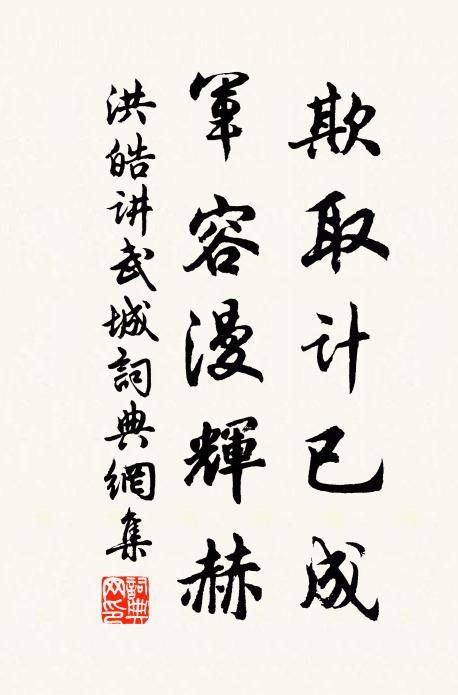 欺取计已成
軍容漫輝赫
洪皓讲武城詞典網集
詞典网印